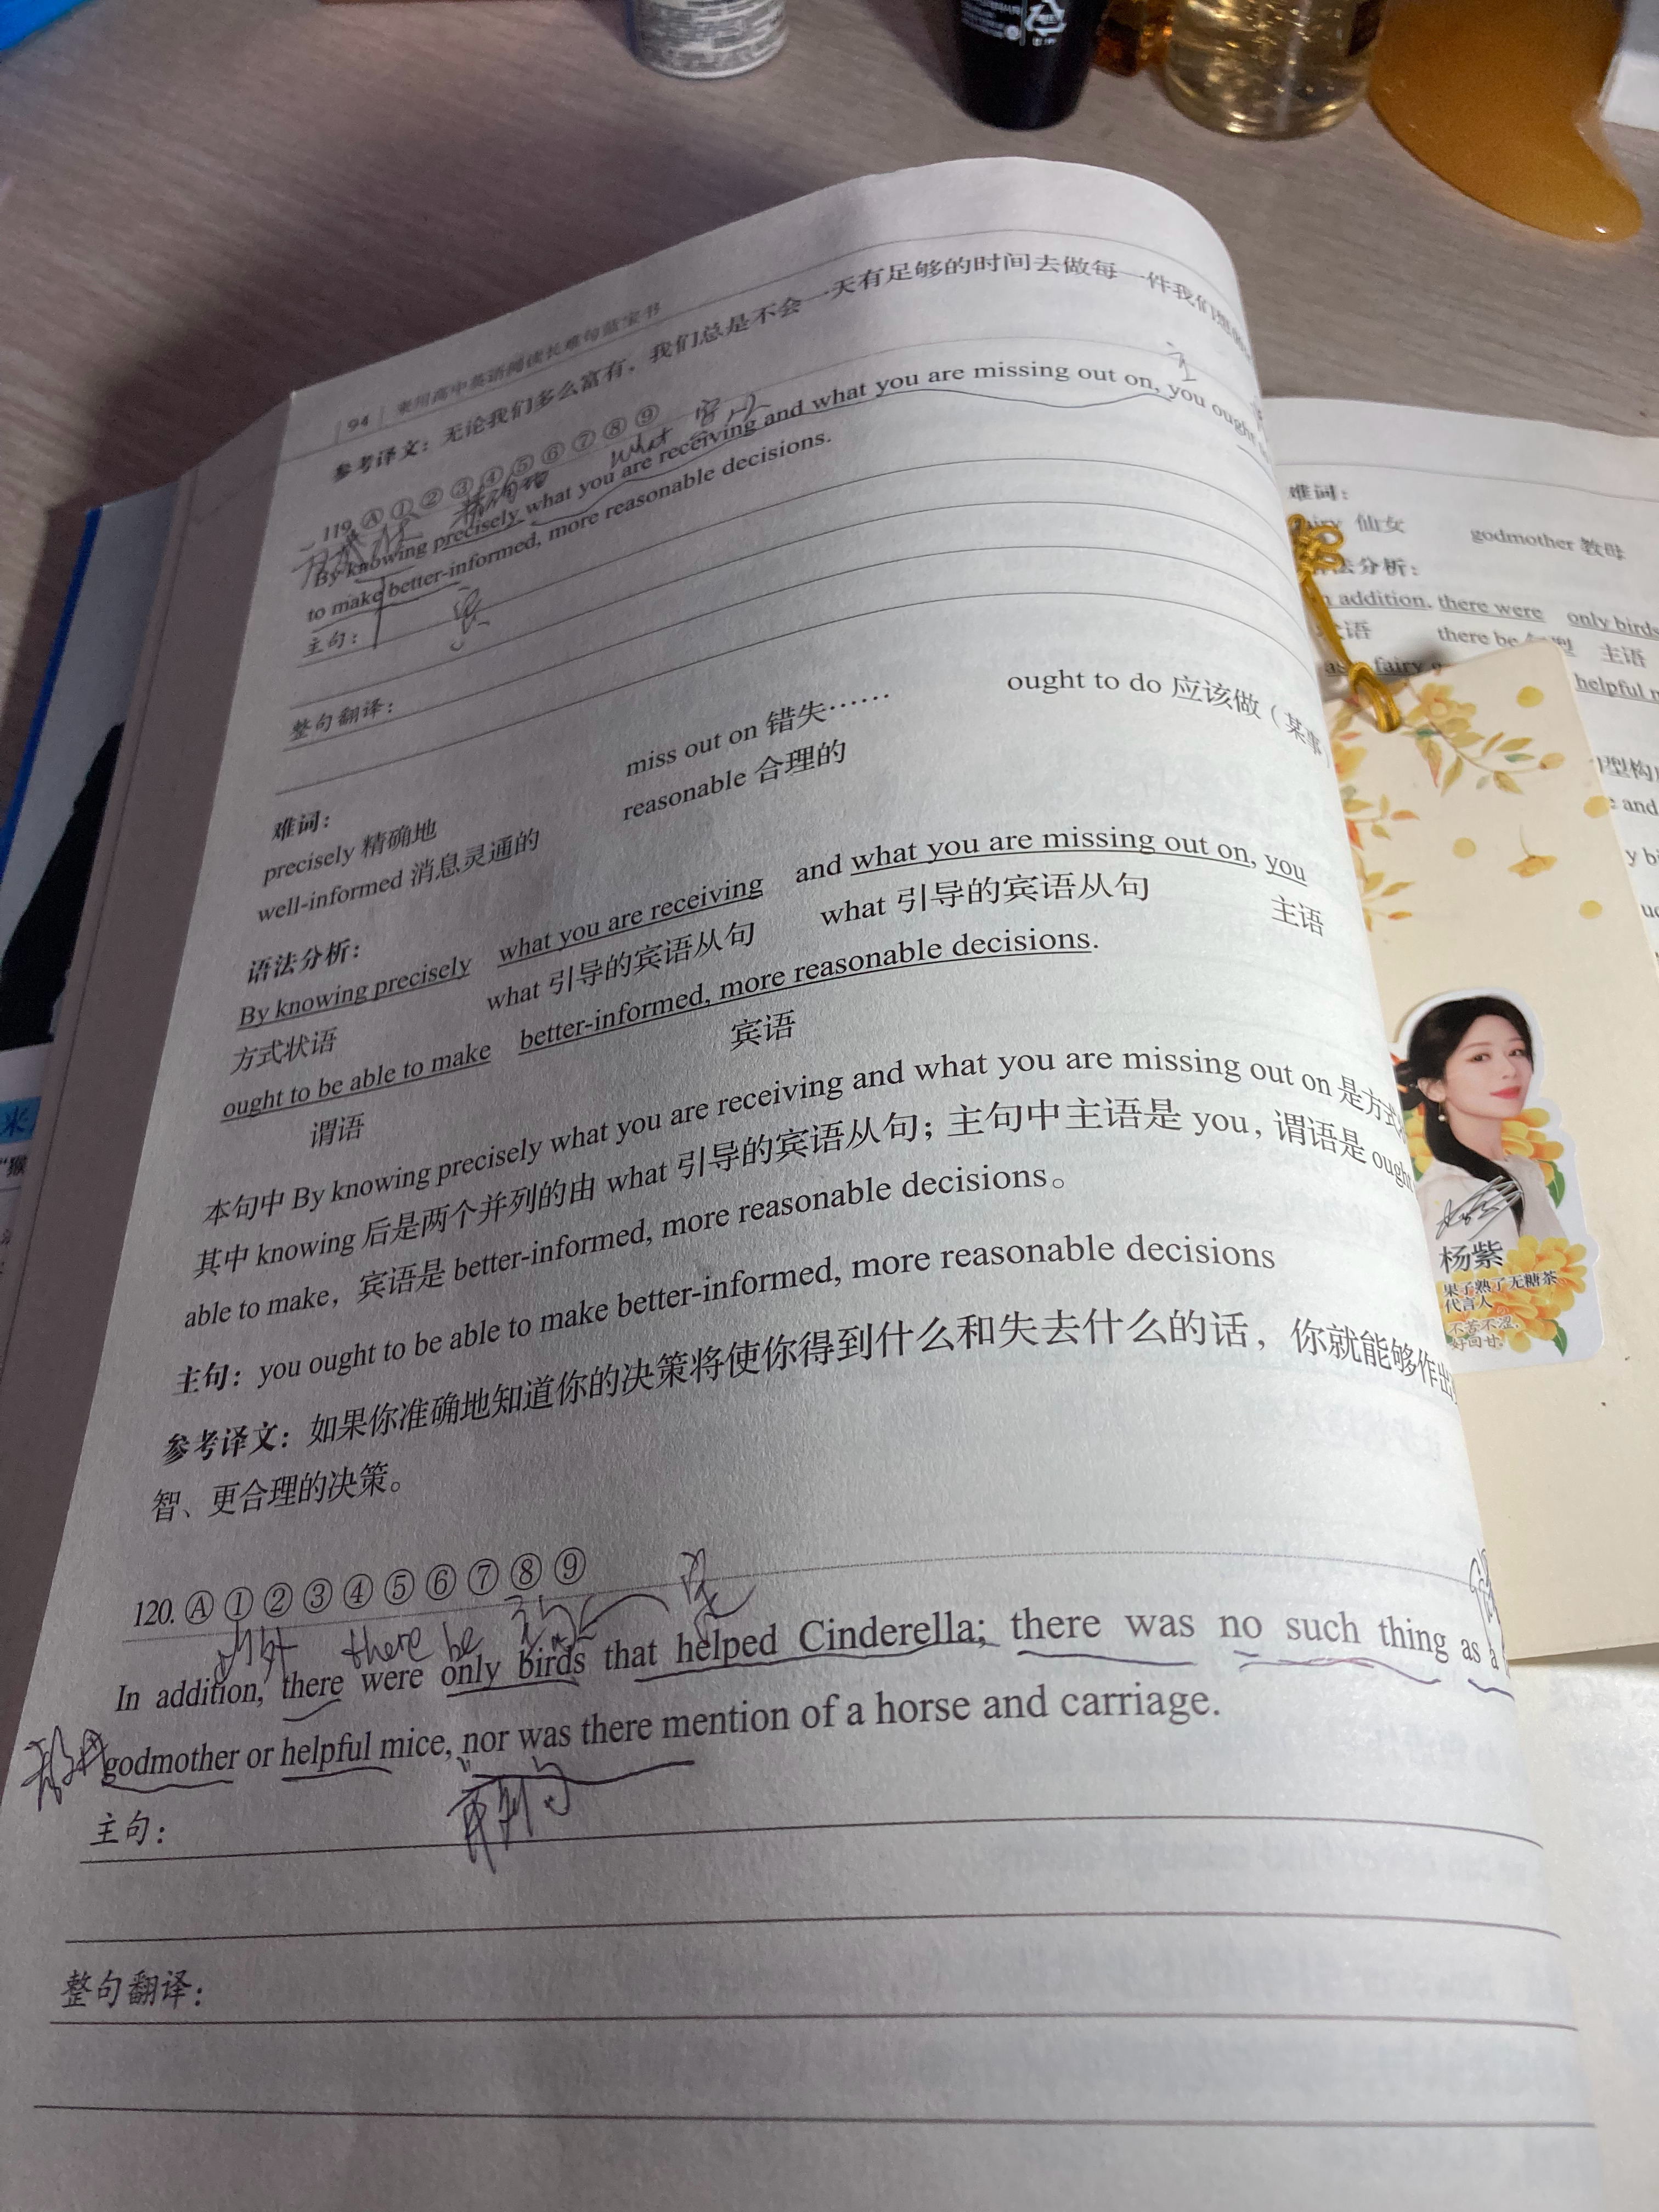 94 来川高中英语阅读长难句蓝宝书
参考译文：无论我们多么富有，我们总是不会一天有足够的时间去做每一件我们想
119. Ⓐ ① ② ③ ④ ⑤ ⑥ ⑦ ⑧ ⑨
精确地 what 宾从
主
By knowing precisely what you are receiving and what you are missing out on, you ought
to make better-informed, more reasonable decisions.
宾
主句：
整句翻译：
难词：
miss out on 错失…… ought to do 应该做（某事
precisely 精确地 reasonable 合理的
well-informed 消息灵通的
语法分析：
By knowing precisely what you are receiving and what you are missing out on, you
方式状语 what 引导的宾语从句 what 引导的宾语从句 主语
ought to be able to make better-informed, more reasonable decisions.
谓语 宾语
本句中 By knowing precisely what you are receiving and what you are missing out on 是方式
其中 knowing 后是两个并列的由 what 引导的宾语从句；主句中主语是 you, 谓语是 ought
able to make，宾语是 better-informed, more reasonable decisions。
主句：you ought to be able to make better-informed, more reasonable decisions
参考译文：如果你准确地知道你的决策将使你得到什么和失去什么的话，你就能够作出
智、更合理的决策。
120. Ⓐ ① ② ③ ④ ⑤ ⑥ ⑦ ⑧ ⑨
there be
In addition, there were only birds that helped Cinderella; there was no such thing as a
godmother or helpful mice, nor was there mention of a horse and carriage.
主句：
整句翻译：
难词：
仙女 godmother 教母
法分析：
addition, there were only birds
语 there be 主语
as fairy
helpful
型构
and
杨紫
果子熟了无糖茶
代言人
不苦不涩，
好回甘。
米
“猴